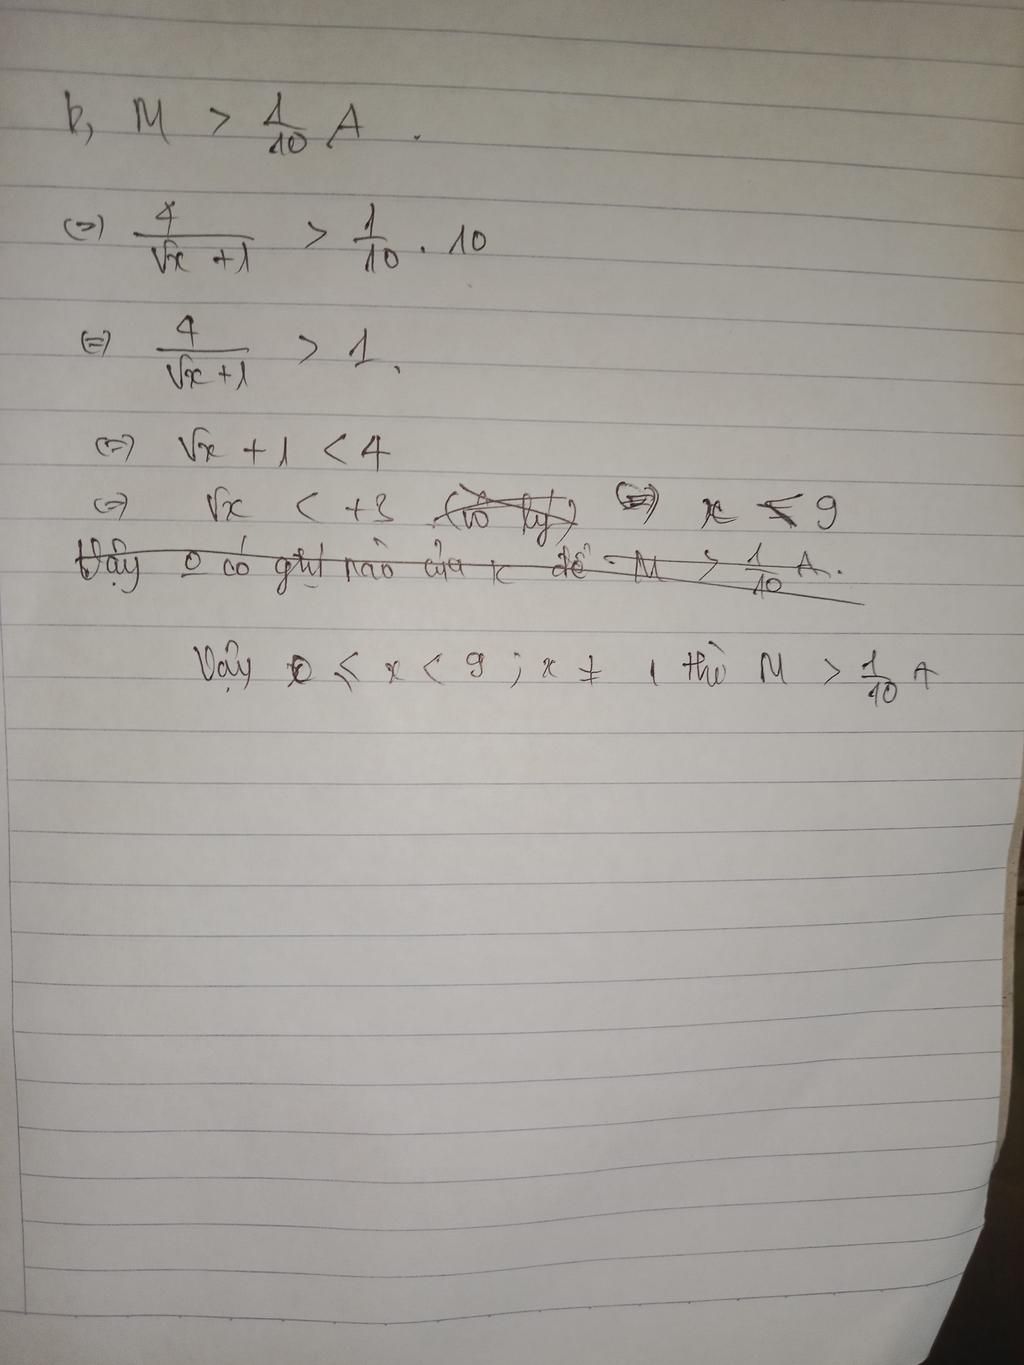 b, M > 1/10 A .
(=) 4/(√x +1) > 1/10 . 10
(=) 4/(√x +1) > 1 .
(=) √x + 1 < 4
(=) √x < +3 (vô lý) (=) x < 9
Vậy 0 có gtrị nào của x để M > 1/10 A.
Vậy 0 ⩽ x < 9 ; x ≠ 1 thì M > 1/10 A